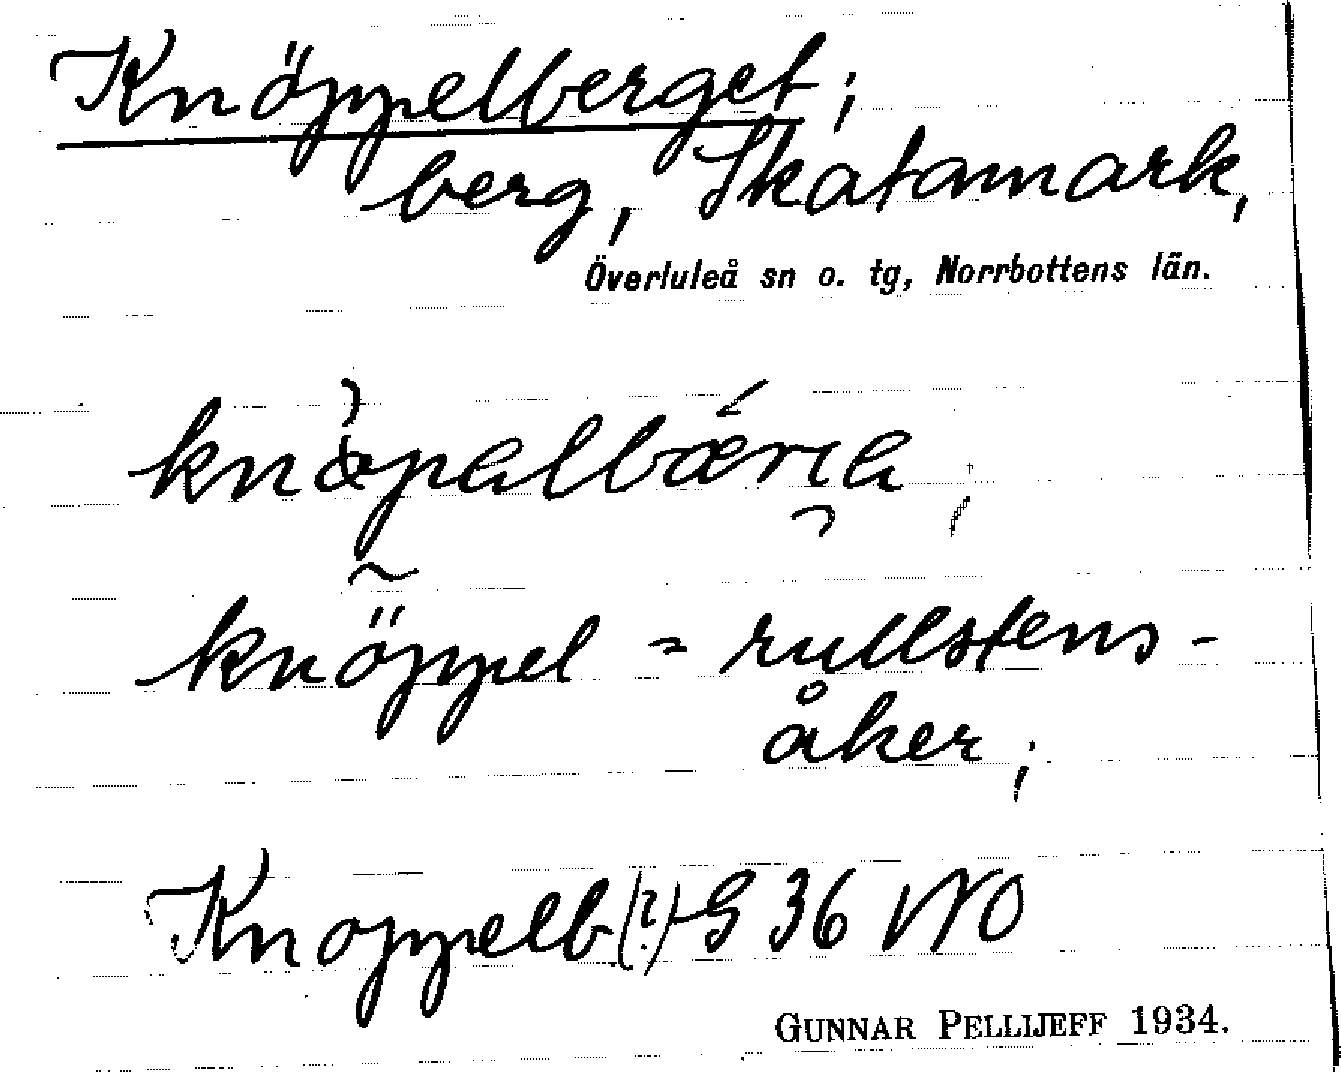 Knöppelberget;
berg, Skatamark,
Överluleå sn o. tg, Norrbottens län.
knöppel = rullstens-
åker;
Knoppelb(?) G 36 NO
GUNNAR PELLIJEFF 1934.